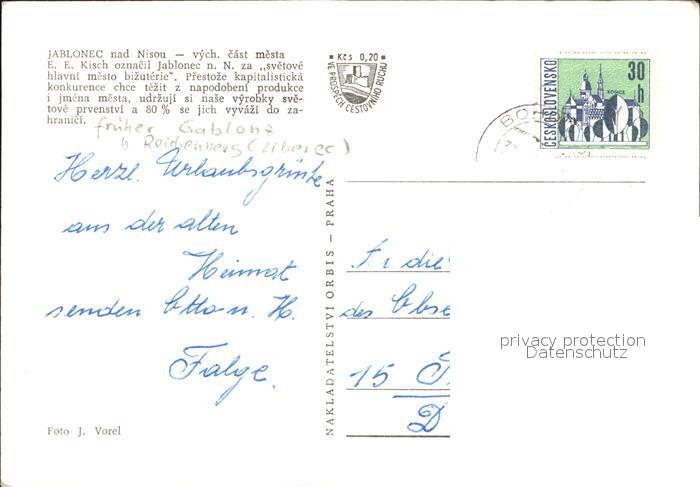 JABLONEC nad Nisou — vých. část města
E. E. Kisch označil Jablonec n. N. za „světové
hlavní město bižutérie“. Přestože kapitalistická
konkurence chce těžit z napodobení produkce
i jména města, udržují si naše výrobky svě-
tové prvenství a 80 % se jich vyváží do za-
hraničí.
früher Gablonz
b Reichenberg (Liberec)
Herzl. Urlaubsgrüße
aus der alten
Heimat
senden Otto u. H.
Falge.
Foto J. Vorel
Kčs 0,20
VE PROSPĚCH CESTOVNÍHO RUCHU
NAKLADATELSTVÍ ORBIS — PRAHA
ČESKOSLOVENSKO
30
h
KOŠICE
die
des
15
D
privacy protection
Datenschutz